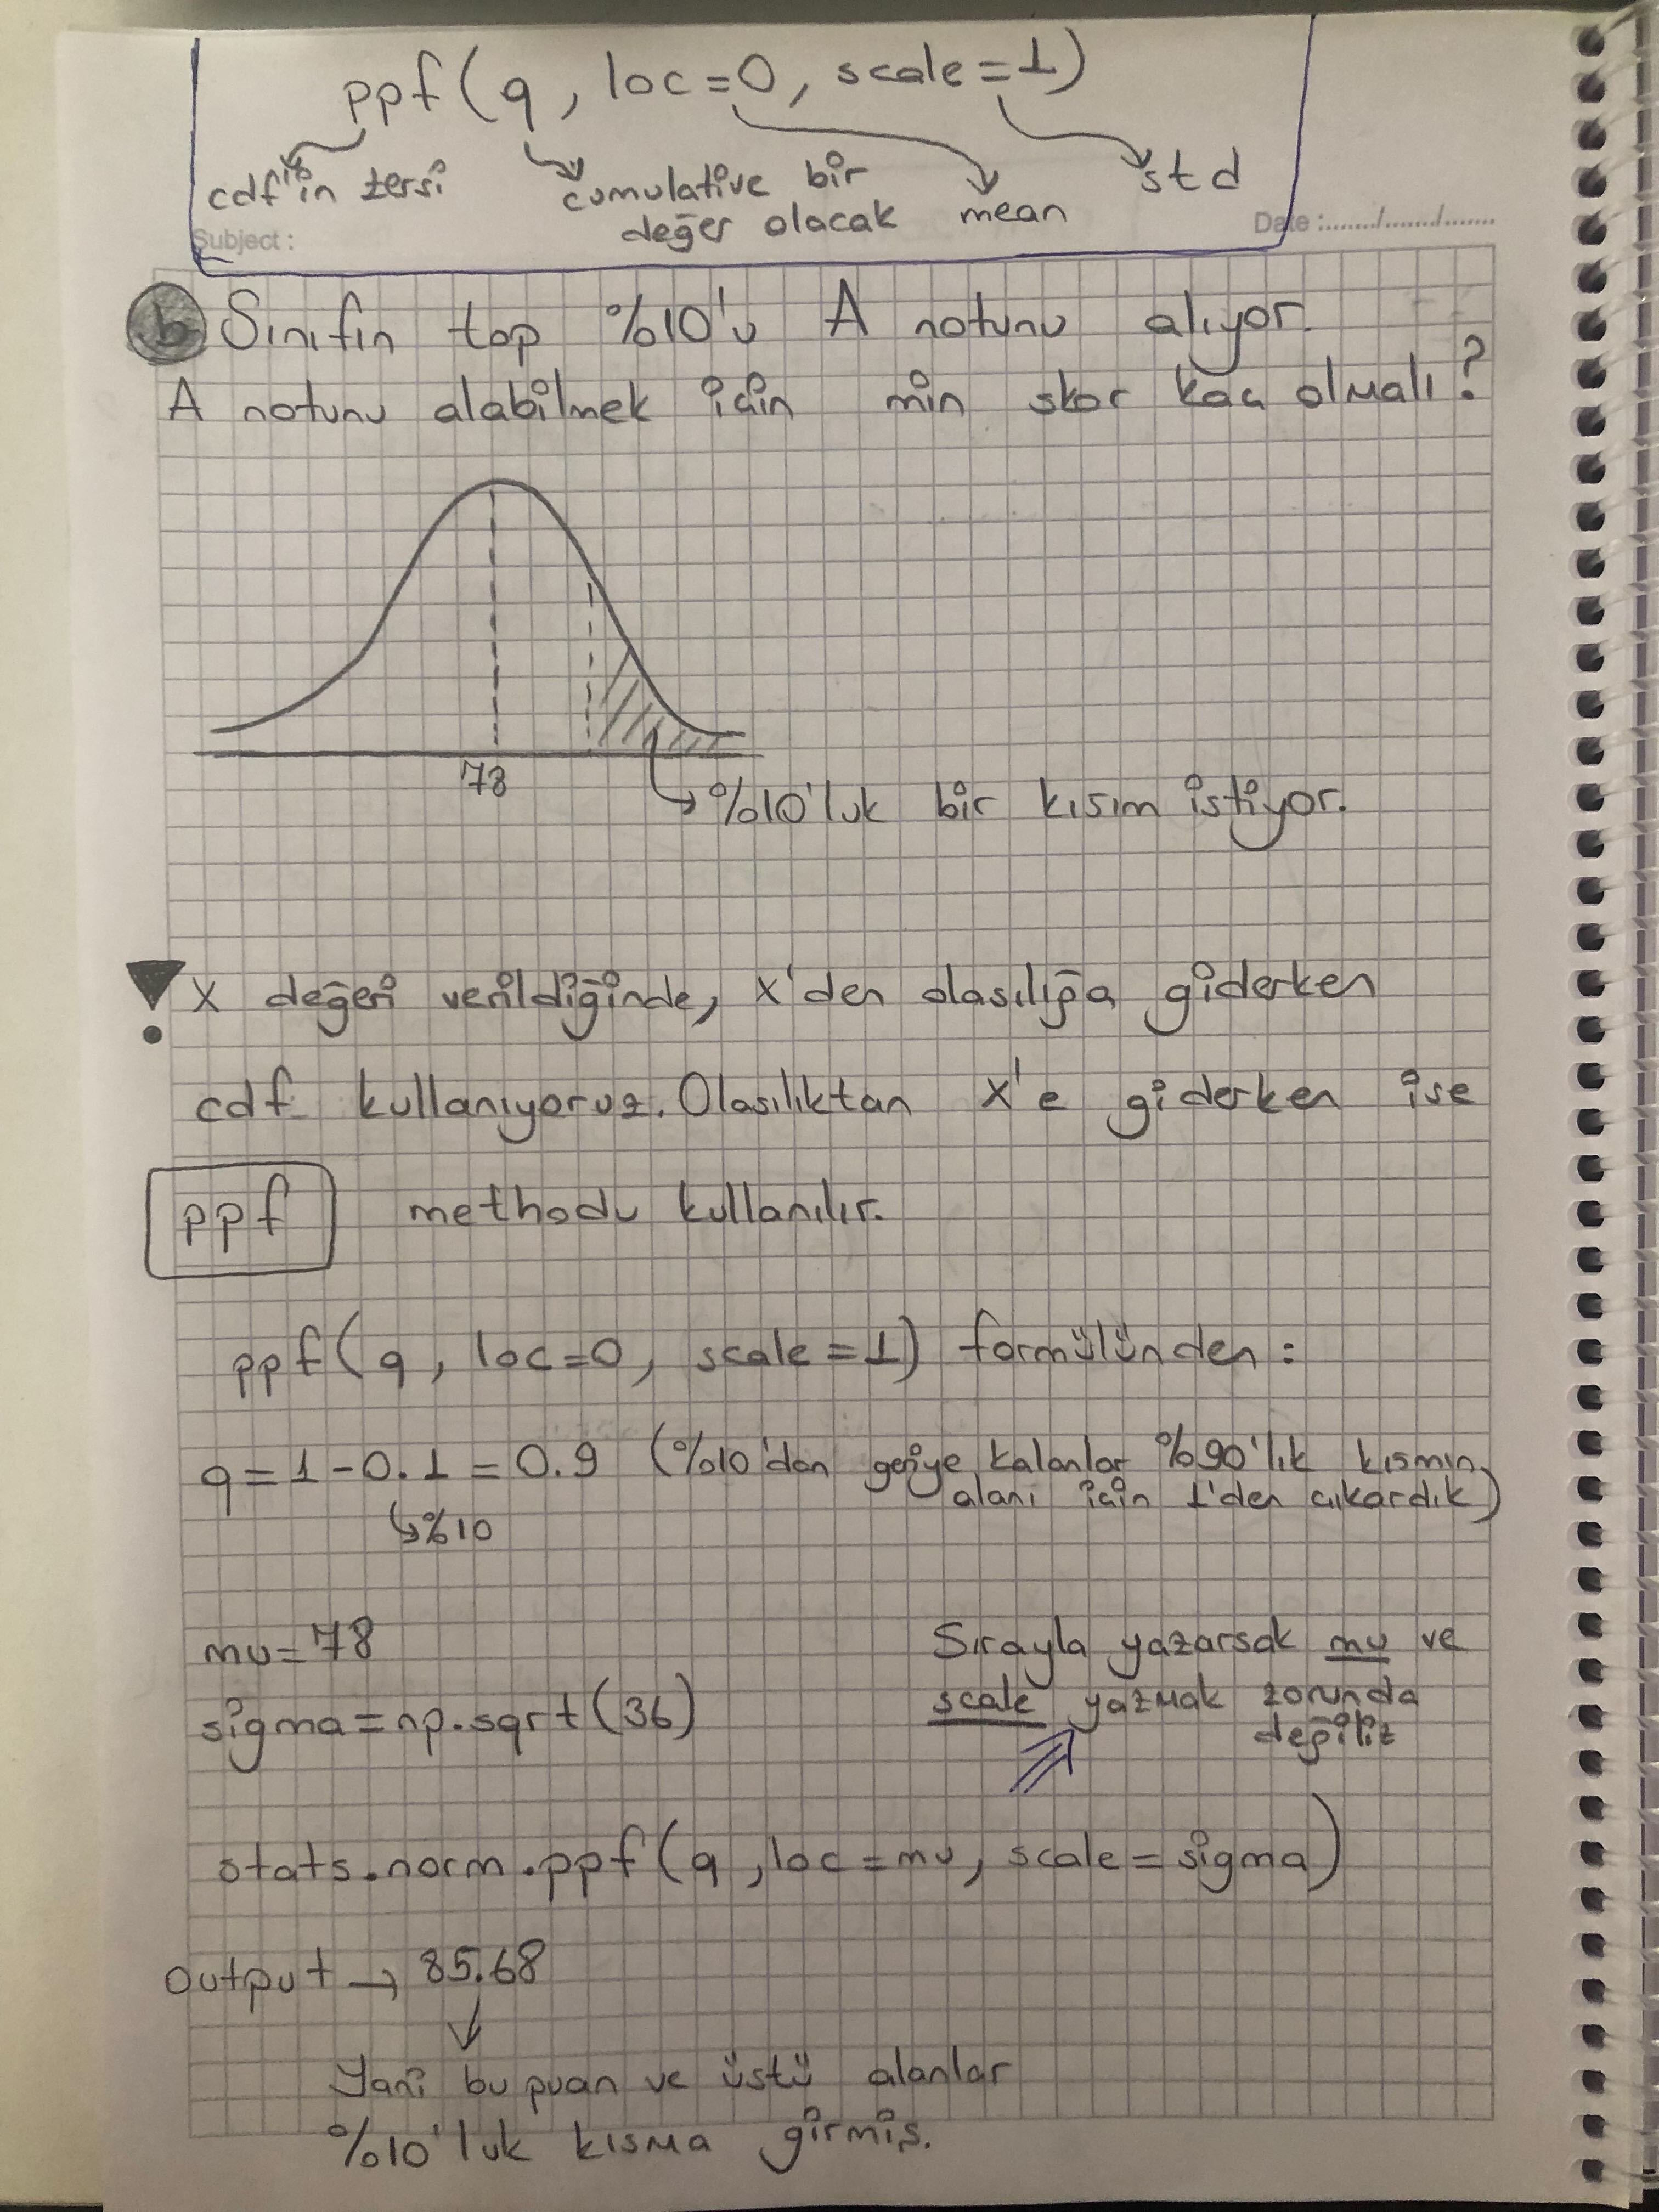 ppf(q, loc=0, scale=1)
cdf'in tersi
cumulative bir
değer olacak
mean
std
Subject :
Date :......./......./.......
b Sınıfın top %10'u A notunu alıyor.
A notunu alabilmek için min skor kaç olmalı?
78
%10'luk bir kısım istiyor.
! X değeri verildiğinde, X'den olasılığa giderken
cdf kullanıyoruz. Olasılıktan X'e giderken ise
ppf methodu kullanılır.
ppf(q, loc=0, scale=1) formülünden:
q=1-0.1=0.9 (%10'dan geriye kalanlar %90'lık kısmın
alanı için 1'den çıkardık)
↳%10
mu=78
sigma=np.sqrt(36)
Sırayla yazarsak mu ve
scale yazmak zorunda
değiliz
stats.norm.ppf(q, loc=mu, scale=sigma)
output → 85.68
Yani bu puan ve üstü alanlar
%10'luk kısma girmiş.